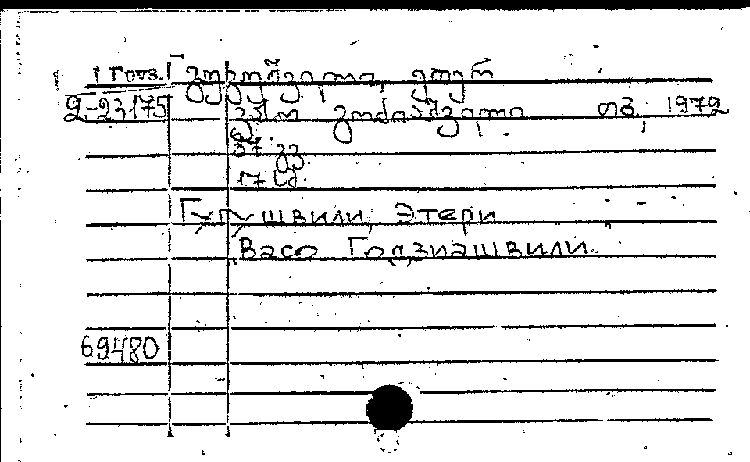 გუგუშვილი, ეთერ
2-23175 ვასო გოძიაშვილი თბ., 1972
37 გვ.
Гугушвили, Этери
Васо Годзиашвили.
69480